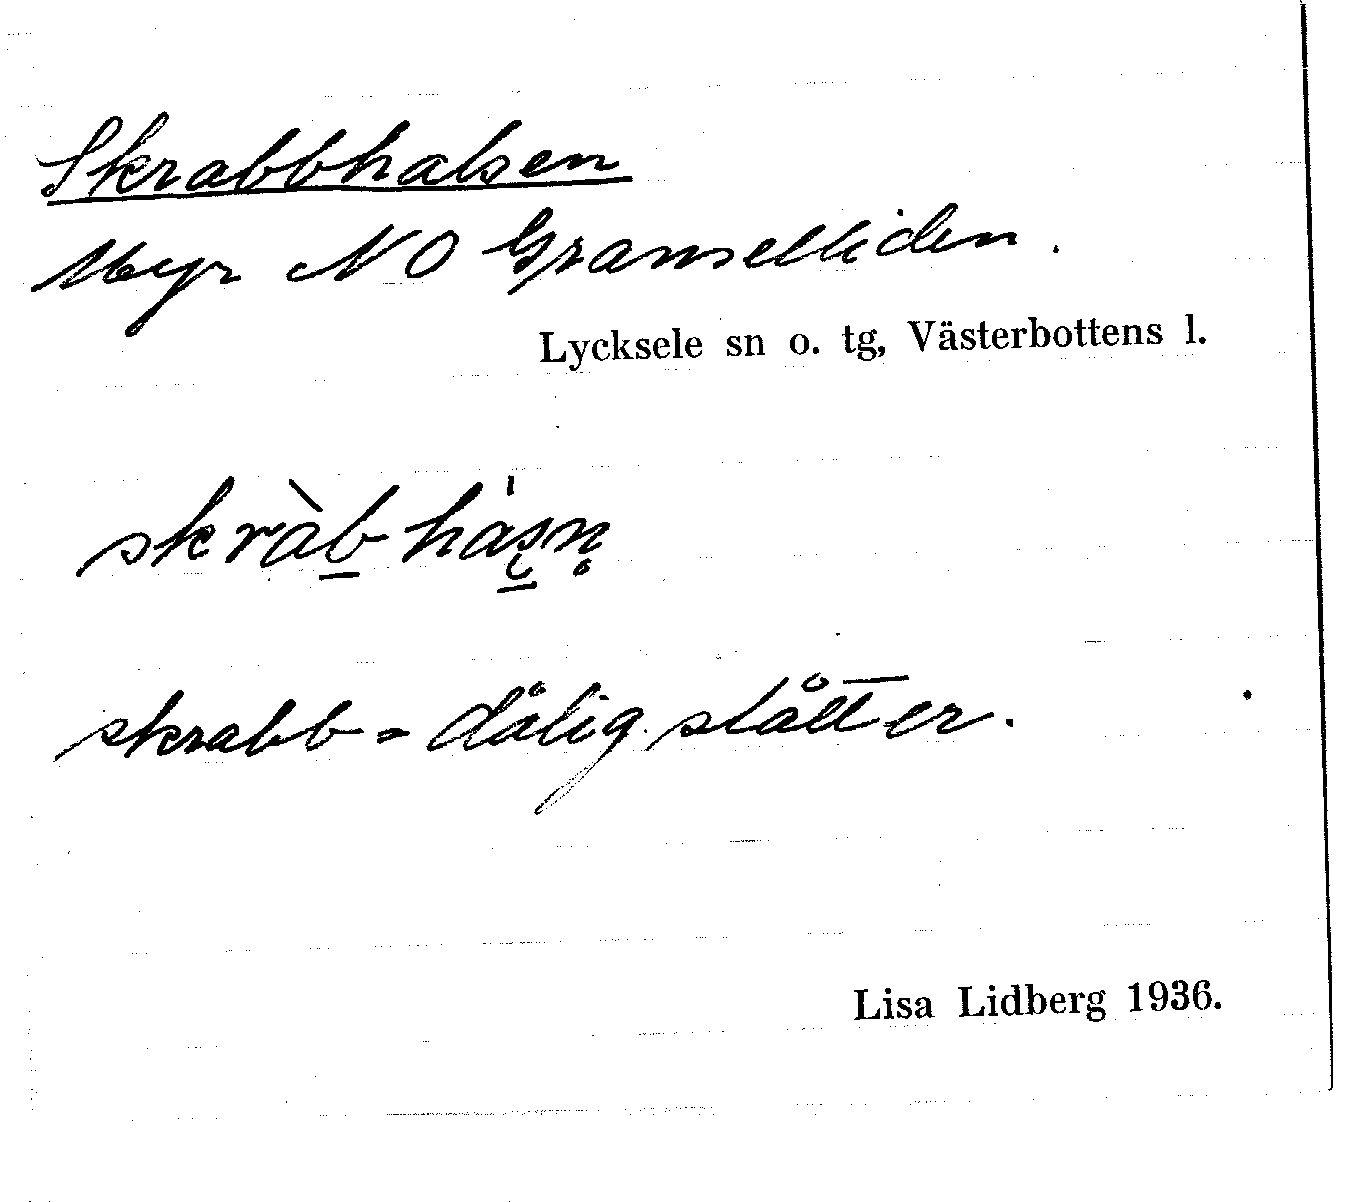 Skrabbhalsen
Myr NO Granselliden.
Lycksele sn o. tg, Västerbottens l.
skràb̲ hàs̲n̥
skrabb = dålig slåtter.
Lisa Lidberg 1936.